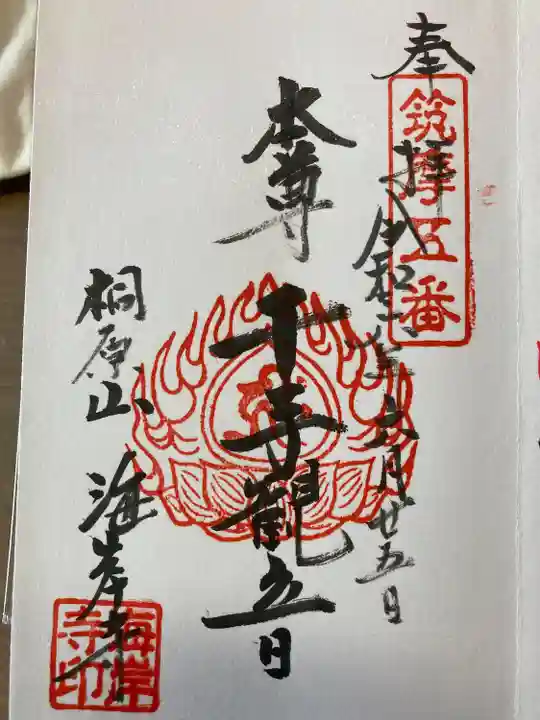 奉拝 令和六年六月廿五日
筑摩五番
本尊 千手観立日
桐原山 海岸寺
海岸寺印